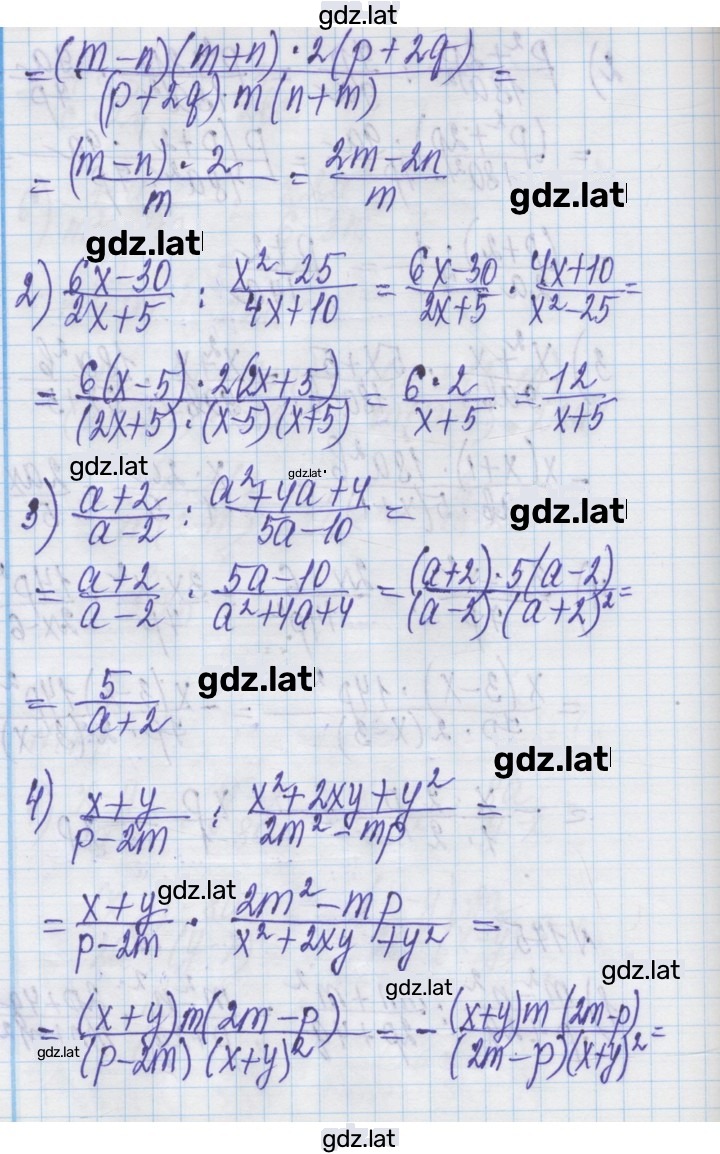 gdz.lat
= (m-n)(m+n)·2(p+2q) / (p+2q)·m(n+m) =
= (m-n)·2 / m = 2m-2n / m
gdz.lat
gdz.lat
2) 6x-30 / 2x+5 : x²-25 / 4x+10 = 6x-30 / 2x+5 · 4x+10 / x²-25 =
= 6(x-5)·2(2x+5) / (2x+5)·(x-5)(x+5) = 6·2 / x+5 = 12 / x+5
gdz.lat
gdz.lat
3) a+2 / a-2 : a²+4a+4 / 5a-10 =
gdz.lat
= a+2 / a-2 · 5a-10 / a²+4a+4 = (a+2)·5(a-2) / (a-2)·(a+2)² =
= 5 / a+2
gdz.lat
gdz.lat
4) x+y / p-2m : x²+2xy+y² / 2m²-mp =
gdz.lat
= x+y / p-2m · 2m²-mp / x²+2xy+y² =
gdz.lat
gdz.lat
= (x+y)m(2m-p) / (p-2m)(x+y)² = - (x+y)m(2m-p) / (2m-p)(x+y)² =
gdz.lat
gdz.lat